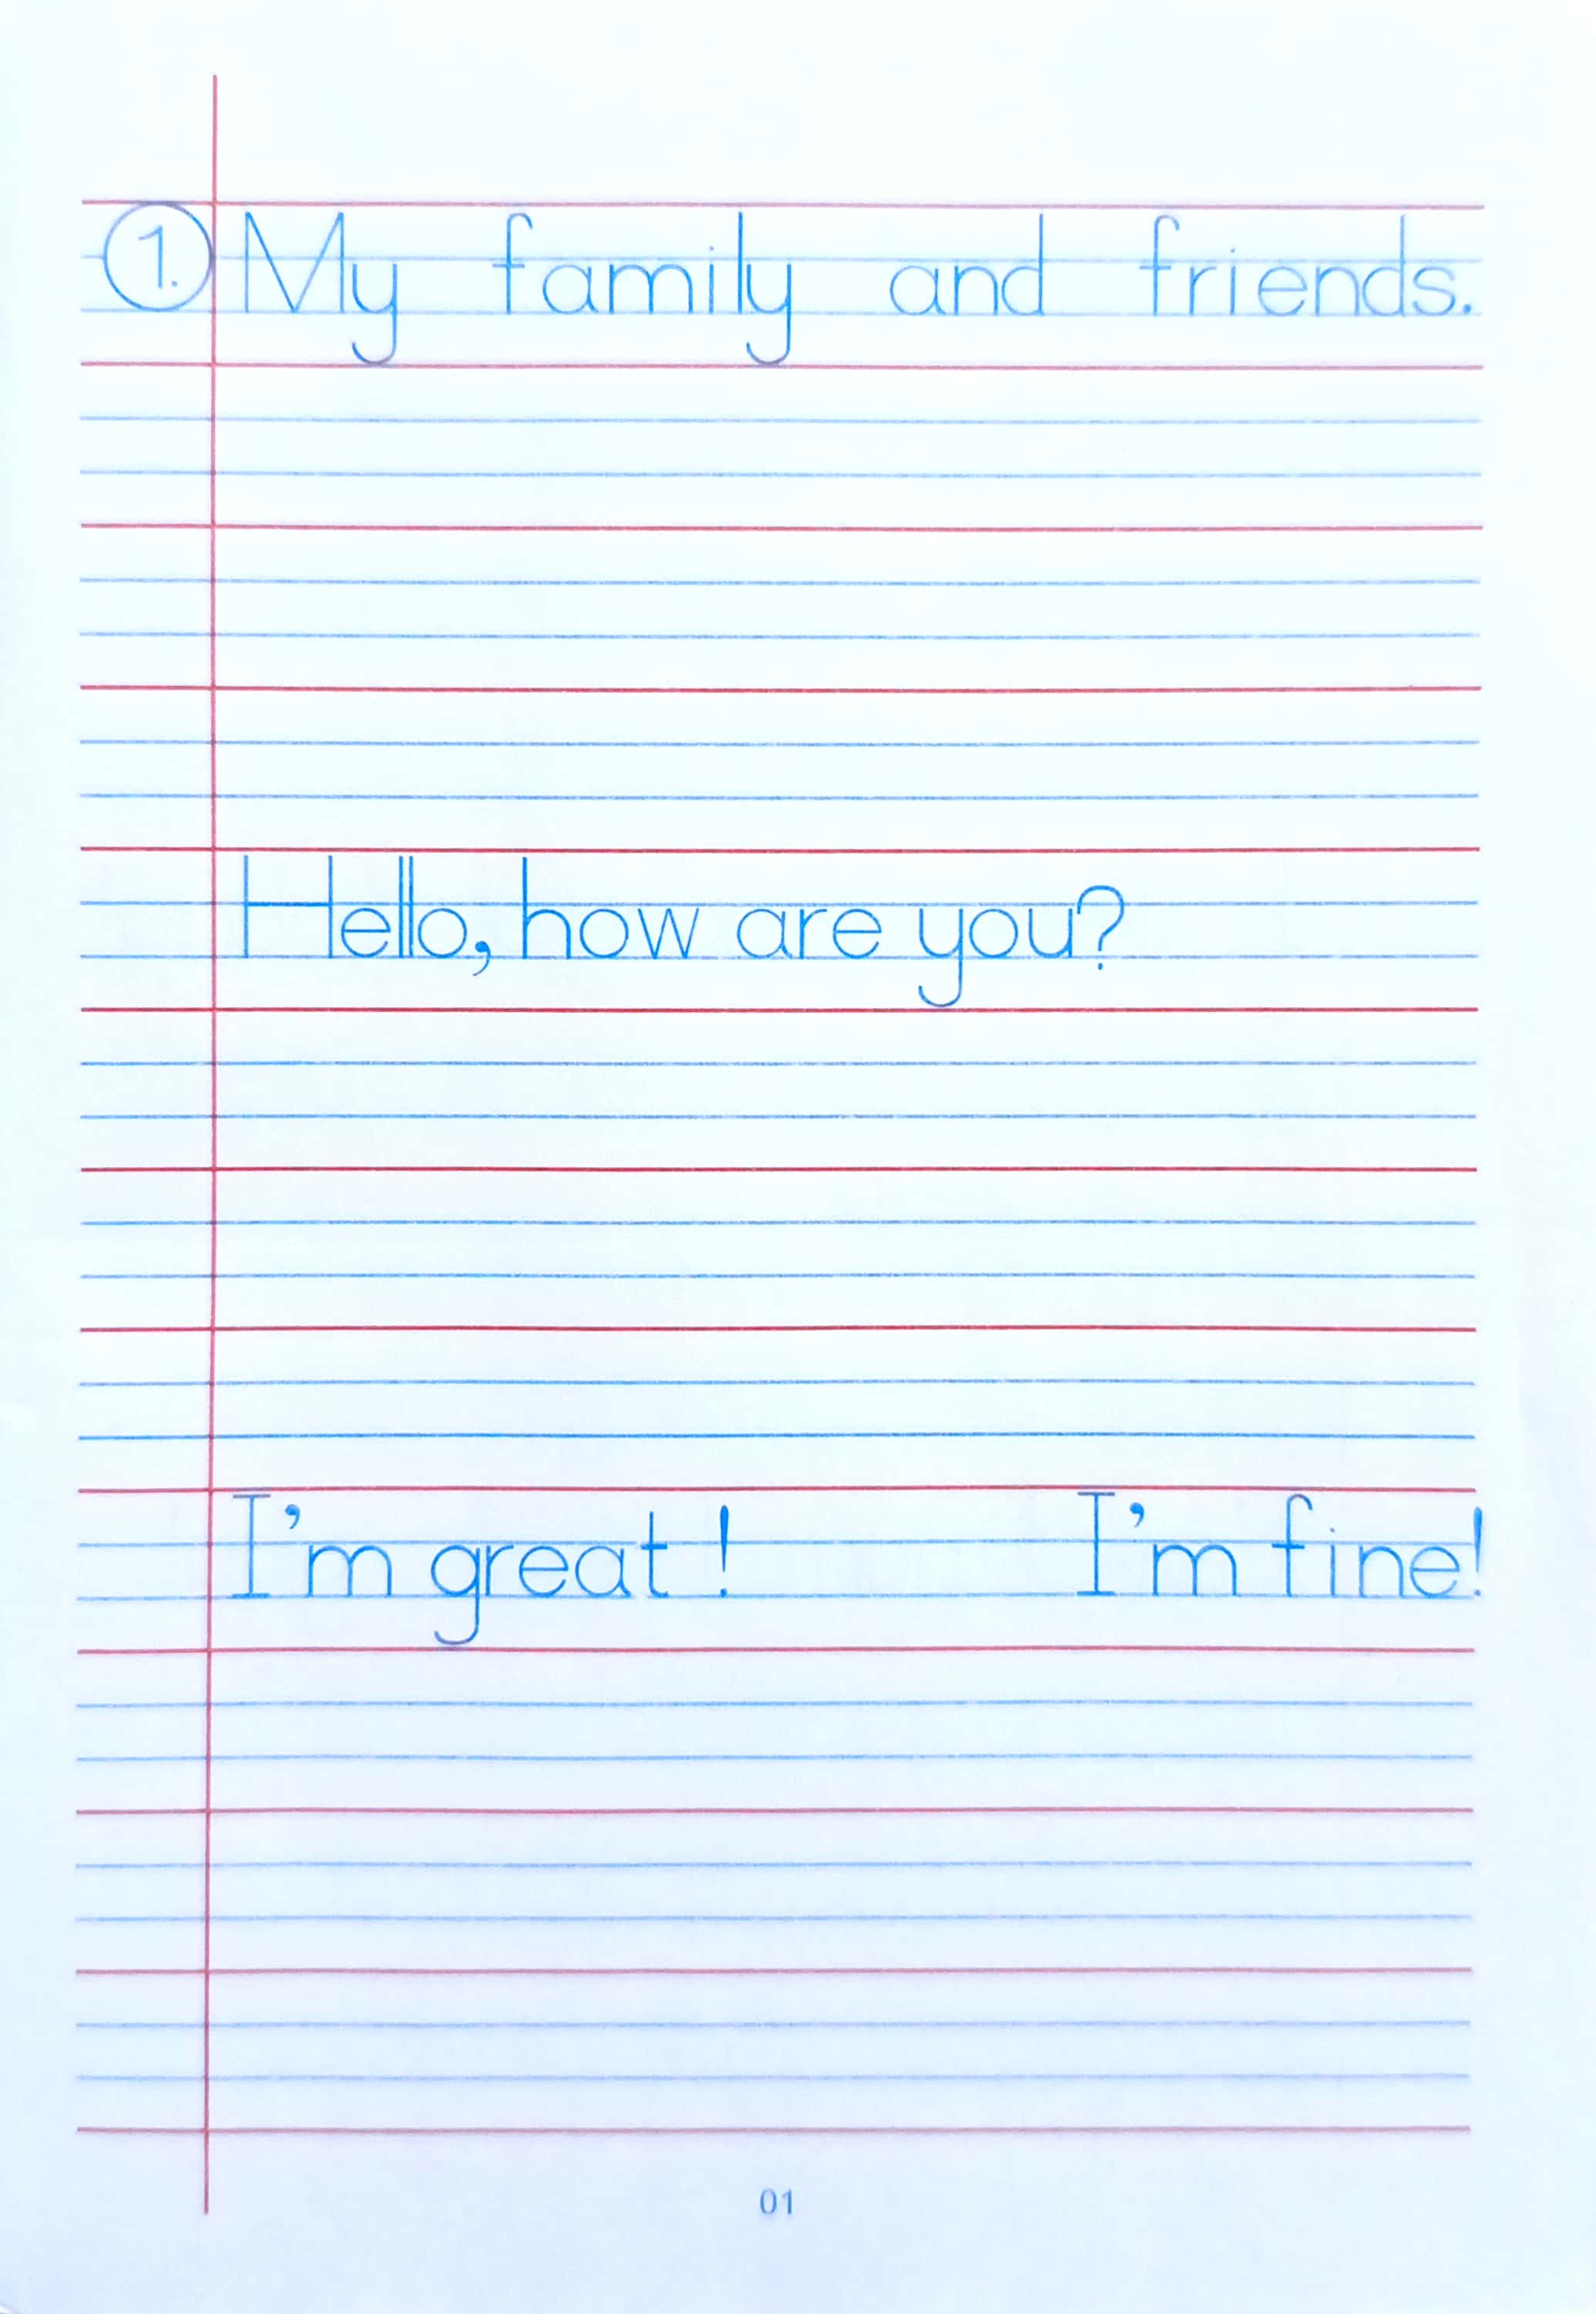 1. My family and friends.
Hello, how are you?
I'm great! I'm fine!
01